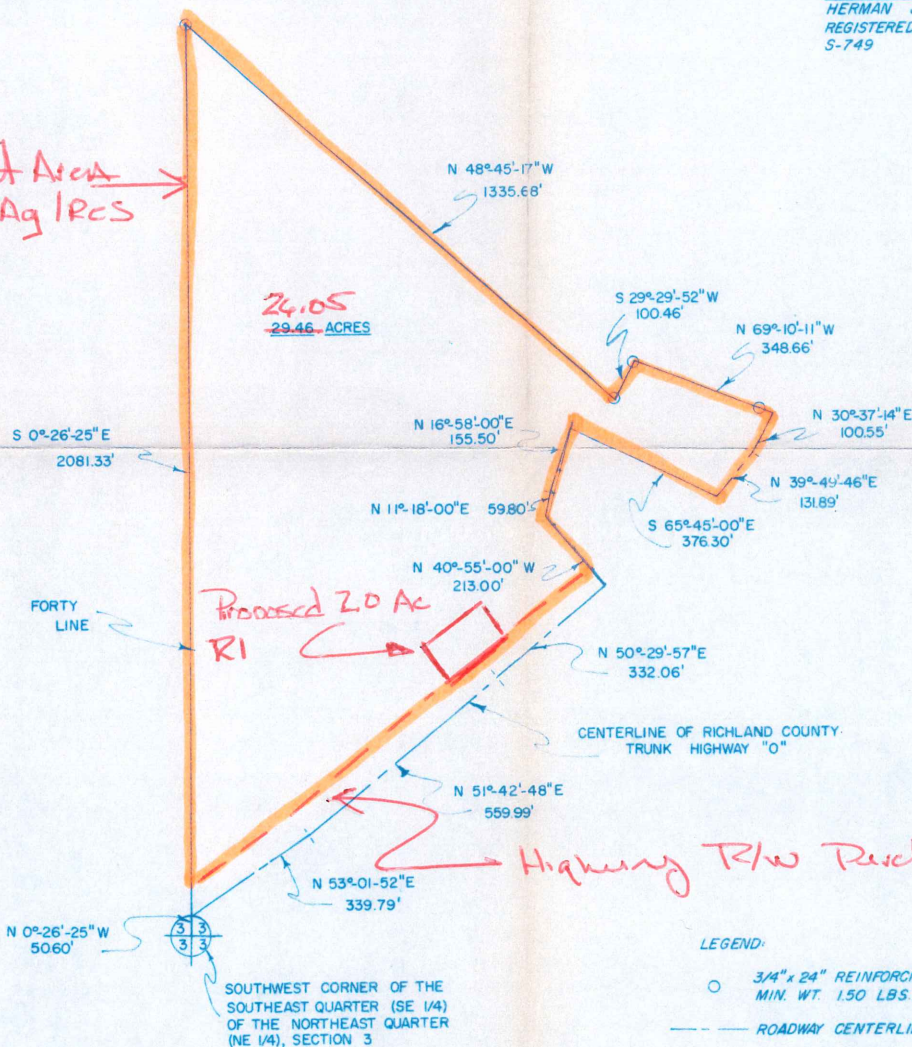 HERMAN
REGISTERED
S-749
N 48°-45'-17"W
1335.68'
Area
Ag/Res
24.05
29.46 ACRES
S 29°-29'-52"W
100.46'
N 69°-10'-11"W
348.66'
N 30°-37'-14"E
100.55'
N 16°-58'-00"E
155.50'
S 0°-26'-25"E
2081.33'
N 39°-49'-46"E
131.89'
N 11°-18'-00"E 59.80'
S 65°-45'-00"E
376.30'
N 40°-55'-00" W
213.00'
FORTY
LINE
Proposed 2.0 Ac
R1
N 50°-29'-57"E
332.06'
CENTERLINE OF RICHLAND COUNTY
TRUNK HIGHWAY "O"
N 51°-42'-48"E
559.99'
Highway R/W
N 53°-01'-52"E
339.79'
N 0°-26'-25"W
50.60'
3 3
3 3
SOUTHWEST CORNER OF THE
SOUTHEAST QUARTER (SE 1/4)
OF THE NORTHEAST QUARTER
(NE 1/4), SECTION 3
LEGEND:
3/4" x 24" REINFORC
MIN. WT. 1.50 LBS.
ROADWAY CENTERLIN